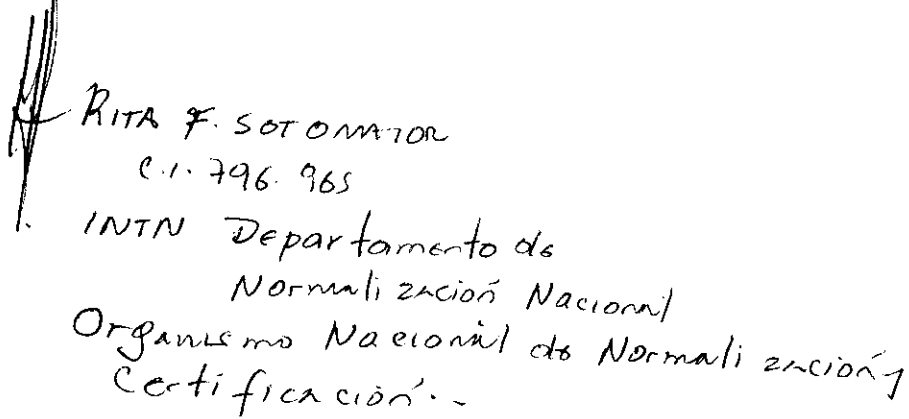 RITA F. SOTOMAYOR
C.I. 796.965
INTN Departamento de
Normalización Nacional
Organismo Nacional de Normalización y
Certificación.-